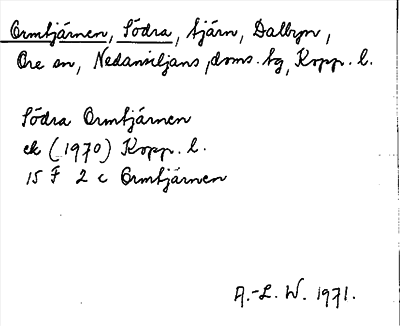 Ormtjärnen, Södra, tjärn, Dalbyn,
Ore sn, Nedansiljans doms. tg, Kopp. l.
Södra Ormtjärnen
ek (1970) Kopp. l.
15 F 2 c Ormtjärnen
A.-L. W. 1971.